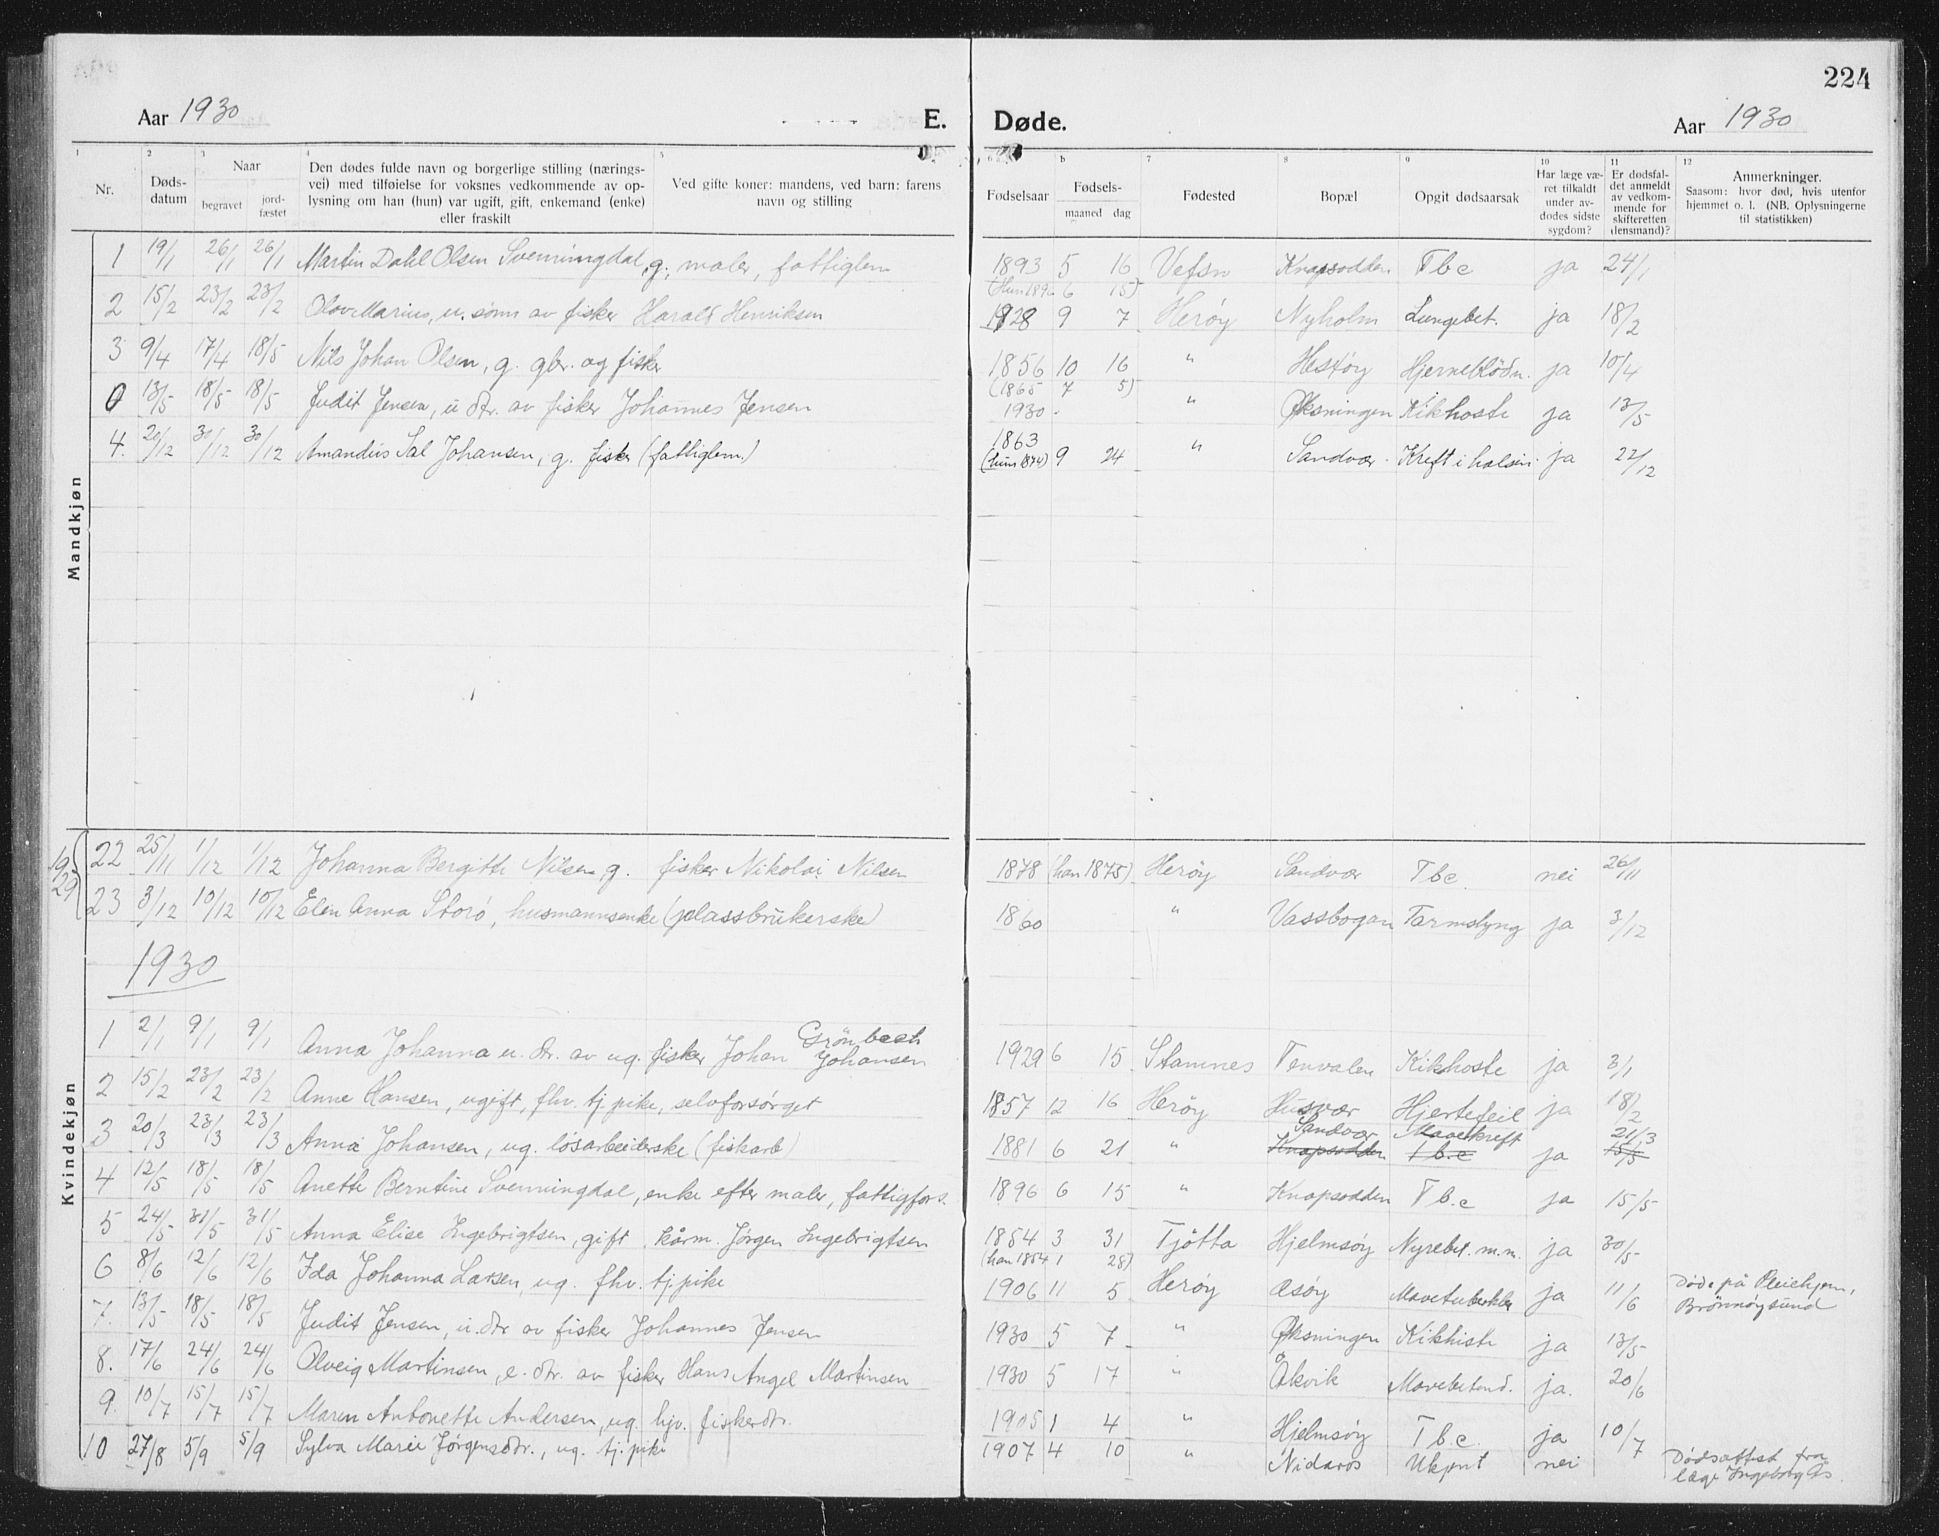 224
Aar 1930 E. Døde. Aar 1930
1 2 3 4 5 6 b 7 8 9 10 11 12
Nr. Døds-datum Naar begravet jord-fæstet Den dødes fulde navn og borgerlige stilling (nærings-vei) med tilføielse for voksnes vedkommende av op-lysning om han (hun) var ugift, gift, enkemand (enke) eller fraskilt Ved gifte koner: mandens, ved barn: farens navn og stilling Fødselsaar Fødsels- maaned dag Fødested Bopæl Opgit dødsaarsak Har læge væ-ret tilkaldt under av-dødes sidste sygdom? Er dødsfal-det anmeldt av vedkom-mende for skifteretten (lensmand)? Anmerkninger. Saasom: hvor død, hvis utenfor hjemmet o. l. (NB. Oplysningerne til statistikken)
Mandkjøn
1 19/1 26/1 26/1 Martin Dahl Olsen Svenningdal, g., maler, fattiglem 1893 5 16 Vefsn Knapsodden Tbc ja 24/1
(Hun 1896 6 15)
2 15/2 23/2 23/2 Olov Marius, u. sønn av fisker Harald Henriksen 1928 9 7 Herøy Nyholm Lungebet. ja 18/2
3 9/4 17/4 18/5 Nils Johan Olsen, g. gbr. og fisker 1856 10 16 " Hestøy Hjerneblödn. ja 10/4
(1865 7 5)
0 13/5 18/5 18/5 Judit Jensen, u dtr. av fisker Johannes Jensen 1930 - " Øksningen Kikhoste ja 13/5
4. 20/12 30/12 30/12 Amandus Sal Johansen, g. fisker (fattiglem.) 1863 (hun 1874) 9 24 " Sandvær Kreft i halsen ja 22/12
Kvindekjøn
1929
22 25/11 1/12 1/12 Johanna Bergitte Nilsen, g. fisker Nikolai Nilsen 1878 (han 1875) Herøy Sandvær Tbc. nei 26/11
23 3/12 10/12 10/12 Elen Anna Storø, husmannsenke (plassbrukerske) 1860 " Vassbogan Tarmslyng ja 3/12
1930
1 2/1 9/1 9/1 Anna Johanna u. dtr. av ug. fisker Johan Grönbech Johansen 1929 6 15 Stamnes Tenvalen Kikhoste ja 3/1
2 15/2 23/2 23/2 Anne Hansen, ugift, fhv. tj.pike, selvforsørget 1857 12 16 Herøy Husvær Hjertefeil ja 18/2
3 20/3 23/3 23/3 Anna Johansen, ug. løsarbeiderske (fiskarb) 1881 6 21 " Sandvær Knapsodden Mavekreft Tb.c ja 21/3 15/5
4 12/5 18/5 18/5 Anette Berntine Svenningdal, enke efter maler, fattigfors. 1896 6 15 " Knapsodden Tb.c ja 15/5
5 24/5 31/5 31/5 Anna Elise Ingebrigtsen, gift kårm. Jørgen Ingebrigtsen 1854 3 31 Tjøtta Hjelmsøy Nyrebet. m.m. ja 30/5
(han 1854 1 28)
6 8/6 12/6 12/6 Ida Johanna Larsen, ug. fhv. tj.pike 1906 11 5 Herøy Åsøy Mavetuberkler ja 11/6 Döde på Pleiehjem, Brönnöysund
7. 13/5 18/5 18/5 Judit Jensen, u. dtr av fisker Johannes Jensen 1930 5 7 " Øksningen Kikhiste ja 13/5
8. 17/6 24/6 24/6 Olveig Martinsen, e. dtr. av fisker Hans Angel Martinsen 1930 5 17 " Åkvik Mavebetend. ja. 20/6
9. 10/7 15/7 15/7 Maren Antonette Andersen, ug. hjv. fiskerdtr. 1905 1 4 " Hjelmsøy Tb.c. ja 10/7
10 27/8 5/9 5/9 Sylva Marie Jörgensdtr., ug. tj.pike 1907 4 10 " Nidaros Ukjent nei Dødsattest fra læge Ingeborg